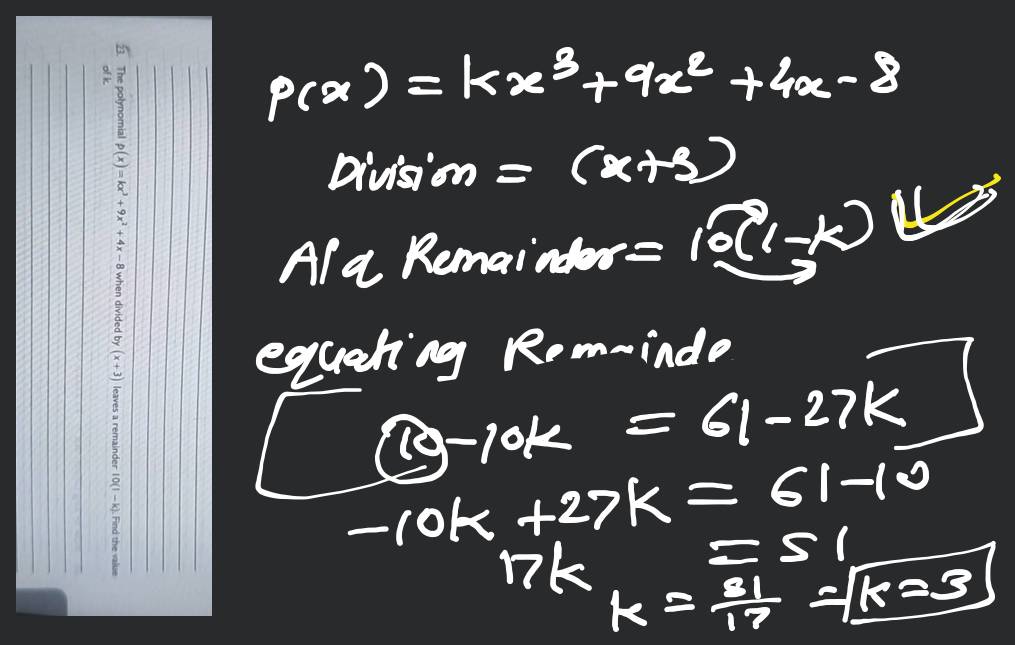 23. The polynomial p(x) = kx³ + 9x² + 4x – 8 when divided by (x + 3) leaves a remainder 10(1 – k). Find the value
of k.
p(x) = kx³ + 9x² + 4x - 8
Division = (x+3)
A/q Remainder = 10(1-k)
equating Remainde
10-10k = 61-27k
-10k +27k = 61-10
17k = 51
k = 51/17 = k=3